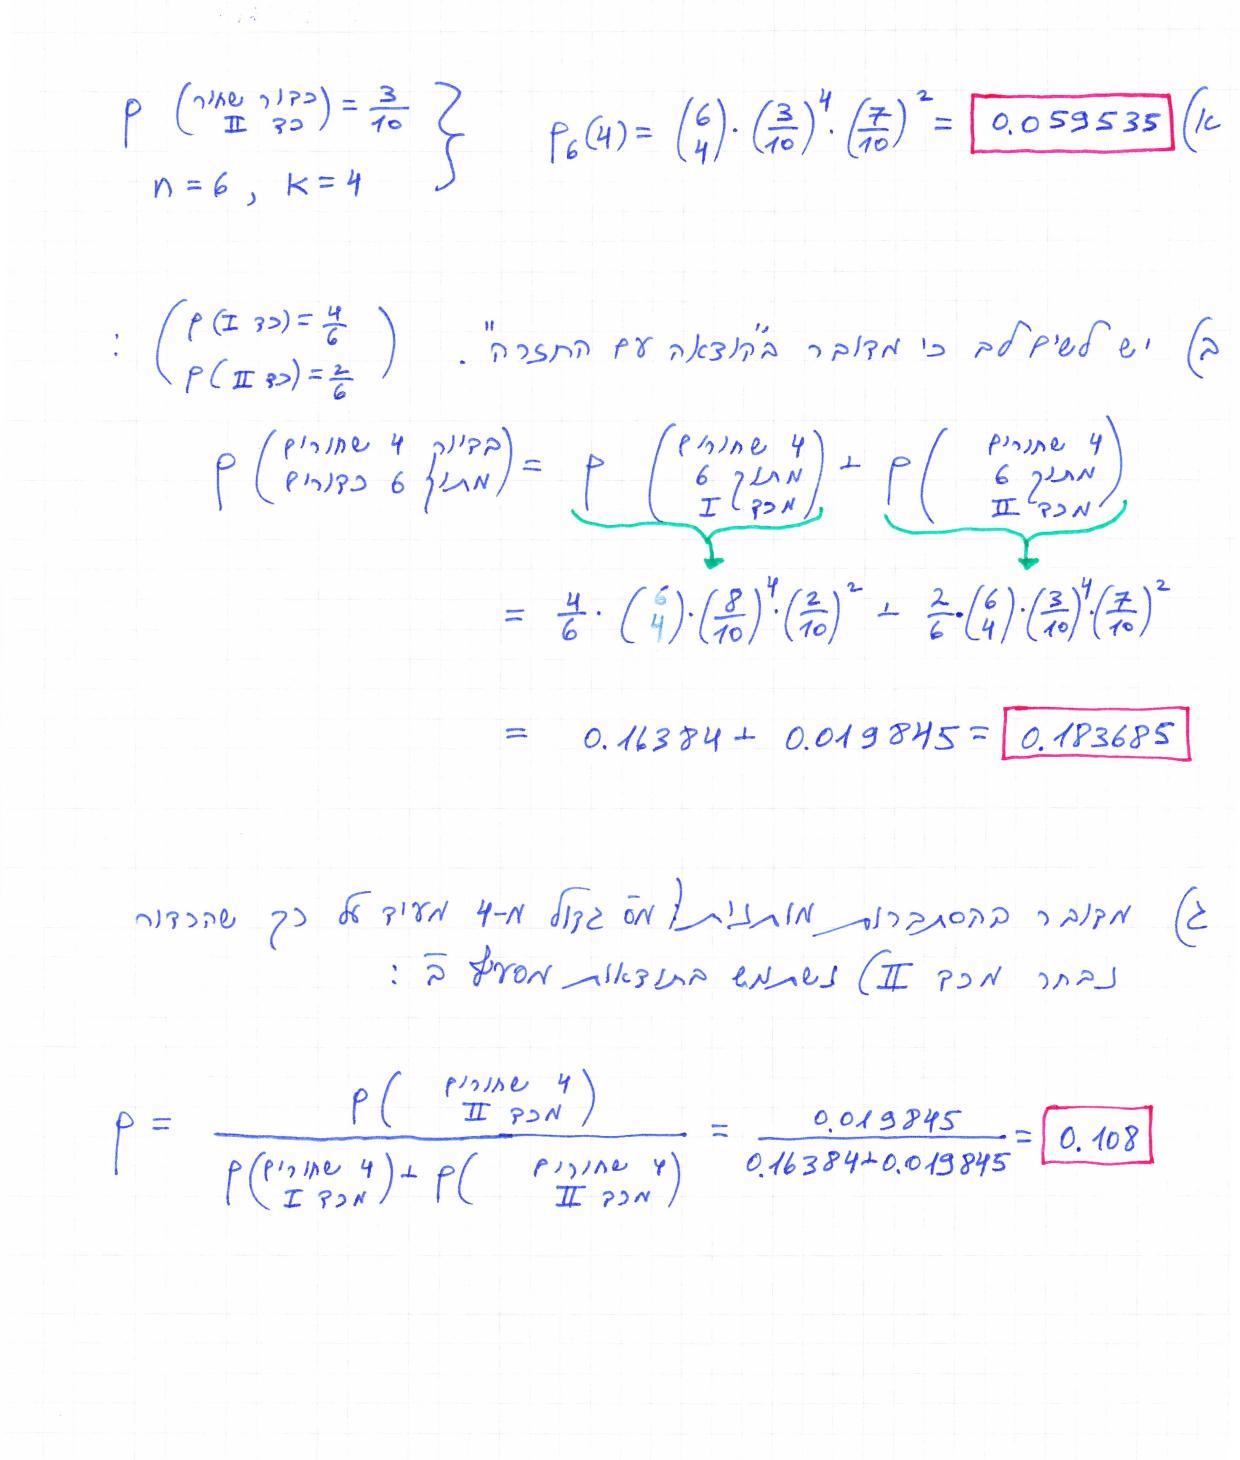 א) P₆(4) = (6 4) · (3/10)⁴ · (7/10)² = 0.059535
P (כדור שחור כד II) = 3/10
n = 6 , k = 4
ב) יש לשים לב כי מדובר ב"הוצאה עם החזרה". (P(כד I) = 4/6 P(כד II) = 2/6) :
P (בדיוק 4 שחורים מתוך 6 כדורים) = P (4 שחורים מתוך 6 מכד I) + P (4 שחורים מתוך 6 מכד II)
= 4/6 · (6 4) · (8/10)⁴ · (2/10)² + 2/6 · (6 4) · (3/10)⁴ · (7/10)²
= 0.16384 + 0.019845 = 0.183685
ג) מדובר בהסתברות מותנית (מס' גדול מ-4 מעיד על כך שהכדור
נבחר מכד II) נשתמש בתוצאות מסעיף ב :
P = P(4 שחורים מכד II) / P(4 שחורים מכד I) + P(4 שחורים מכד II) = 0.019845 / 0.16384+0.019845 = 0.108